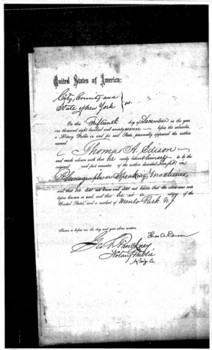 United States of America:
City, County and
State of New York } ss.
On this fifteenth day of December in the year
one thousand eight hundred and seventy seven before the subscriber,
a Notary Public in and for said State personally appeared the within
named
Thomas A. Edison
and made solemn oath that he verily believes himself to be the
original and first inventor of the within described
Phonograph or Speaking Machines
and that he does not know and does not believe that the same was ever
before known or used, and that he is a citizen of the
United States, and a resident of Menlo Park N.J.
Thos A Edison
Sworn to before me the day and year above written.
Geo. Pinckney
Notary Public